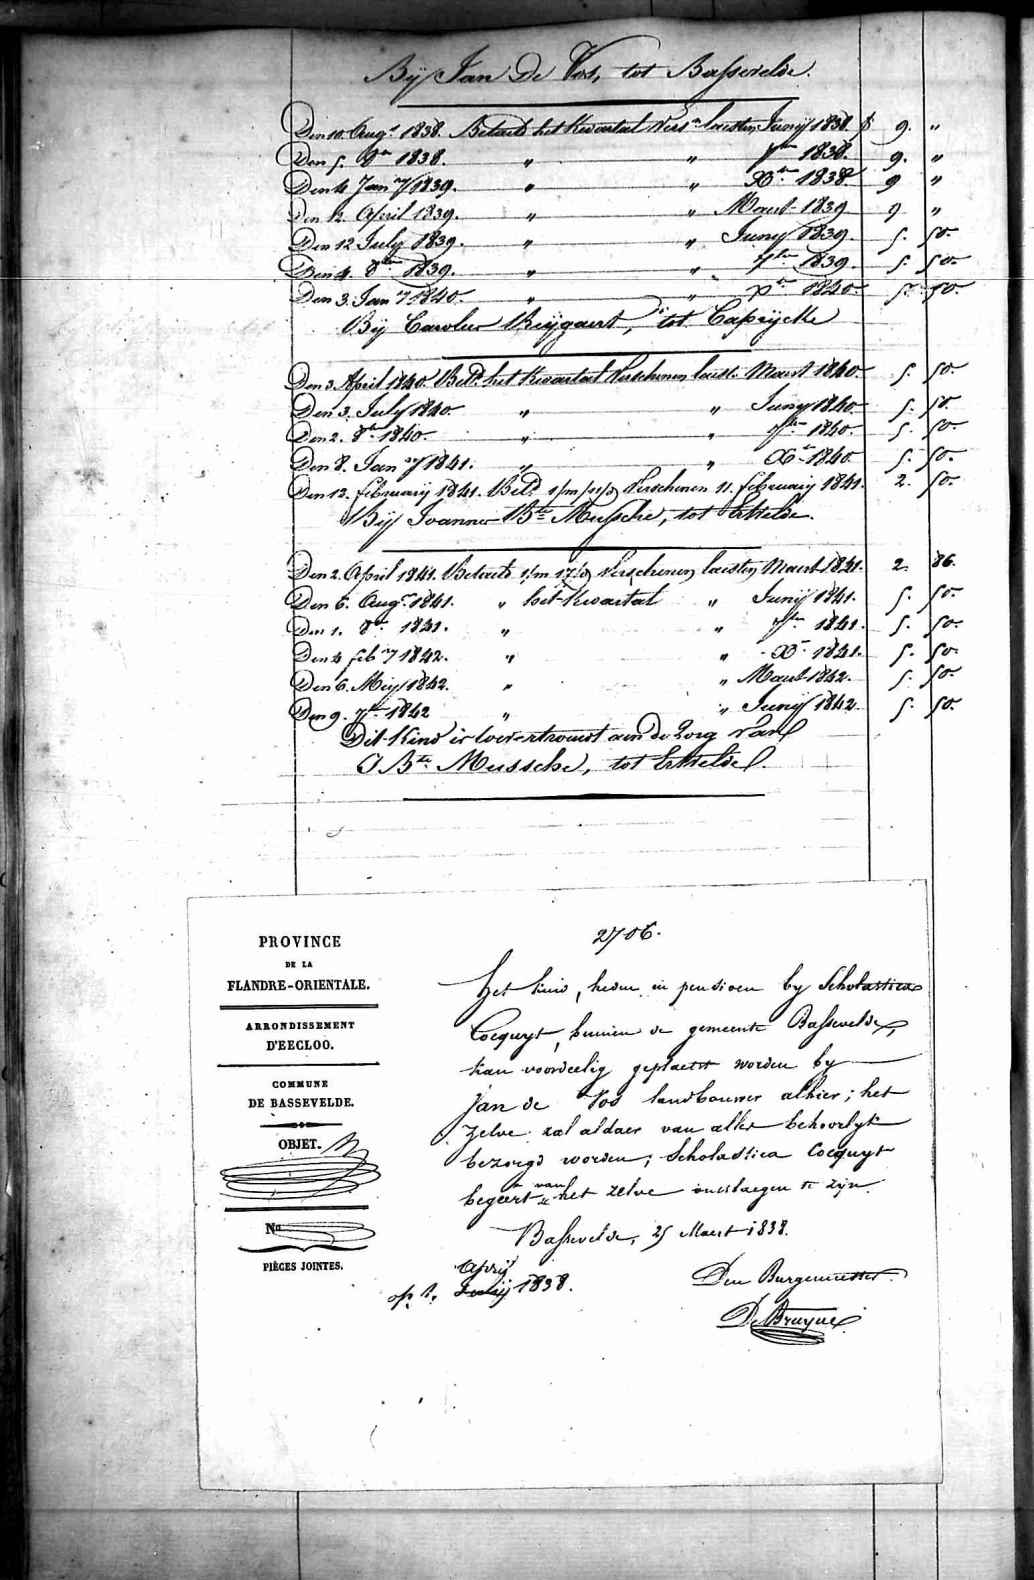 Bÿ Jan De Vos, tot Bassevelde.
Den 10. Augt 1838. Betaeld het Kwartael Versn laesten Junÿ 1838. f 9. "
Den 5. 8er 1838. " " 7ber 1838. 9. "
Den 4 Janry 1839. " " Xber 1838. 9 "
Den 12. April 1839. " " Maert 1839 9 "
Den 12 July 1839. " " Juny 1839. 5. 50.
Den 4. 8ber 1839. " " 7ber 1839. 5. 50.
Den 3. Janry 1840. " " Xber 1840. 5. 50.
Bÿ Carolus Reÿgaert, tot Caprÿcke
Den 3. April 1840. Betd het Kwartael Verschenen laest. Maert 1840. 5. 50.
Den 3. July 1840. " " Juny 1840. 5. 50.
Den 2. 8er 1840. " " 7ber 1840. 5. 50.
Den 8. Janry 1841. " " Xber 1840 5. 50.
Den 12. februarÿ 1841. Betd 1/m 11/d Verschenen 11. february 1841. 2. 50.
Bÿ Joannes Bte Mussche, tot Ertvelde.
Den 2. April 1841. Betaeld 1/m 17/d Verschenen laesten Maert 1841. 2. 86.
Den 6. Augt 1841. " het Kwartael " Junÿ 1841. 5. 50.
Den 1. 8er 1841. " " 7ber 1841. 5. 50.
Den 4 febry 1842. " " Xer 1841. 5. 50.
Den 6. Meÿ 1842. " " Maert 1842. 5. 50.
Den 9. 7ber 1842 " " Junÿ 1842. 5. 50.
Dit Kind is toevertrouwt aen de Zorg van
J Bte Mussche, tot Ertvelde.
PROVINCE
DE LA
FLANDRE-ORIENTALE.
ARRONDISSEMENT
D'EECLOO.
COMMUNE
DE BASSEVELDE.
OBJET.
No
PIÈCES JOINTES.
2706.
Het kind, heden in pensioen by Scholastica
Cocquyt, binnen de gemeente Bassevelde,
kan voordeelig geplaetst worden by
Jan de Vos landbouwer alhier; het
zelve zal aldaer van alles behoorlyk
bezorgd worden; Scholastica Cocquyt
begeert van het zelve ontslaegen te zÿn.
Bassevelde, 25 Maert 1838.
Den Burgemeester
De Bruyne
Aprÿl
op 1. Julÿ 1838.